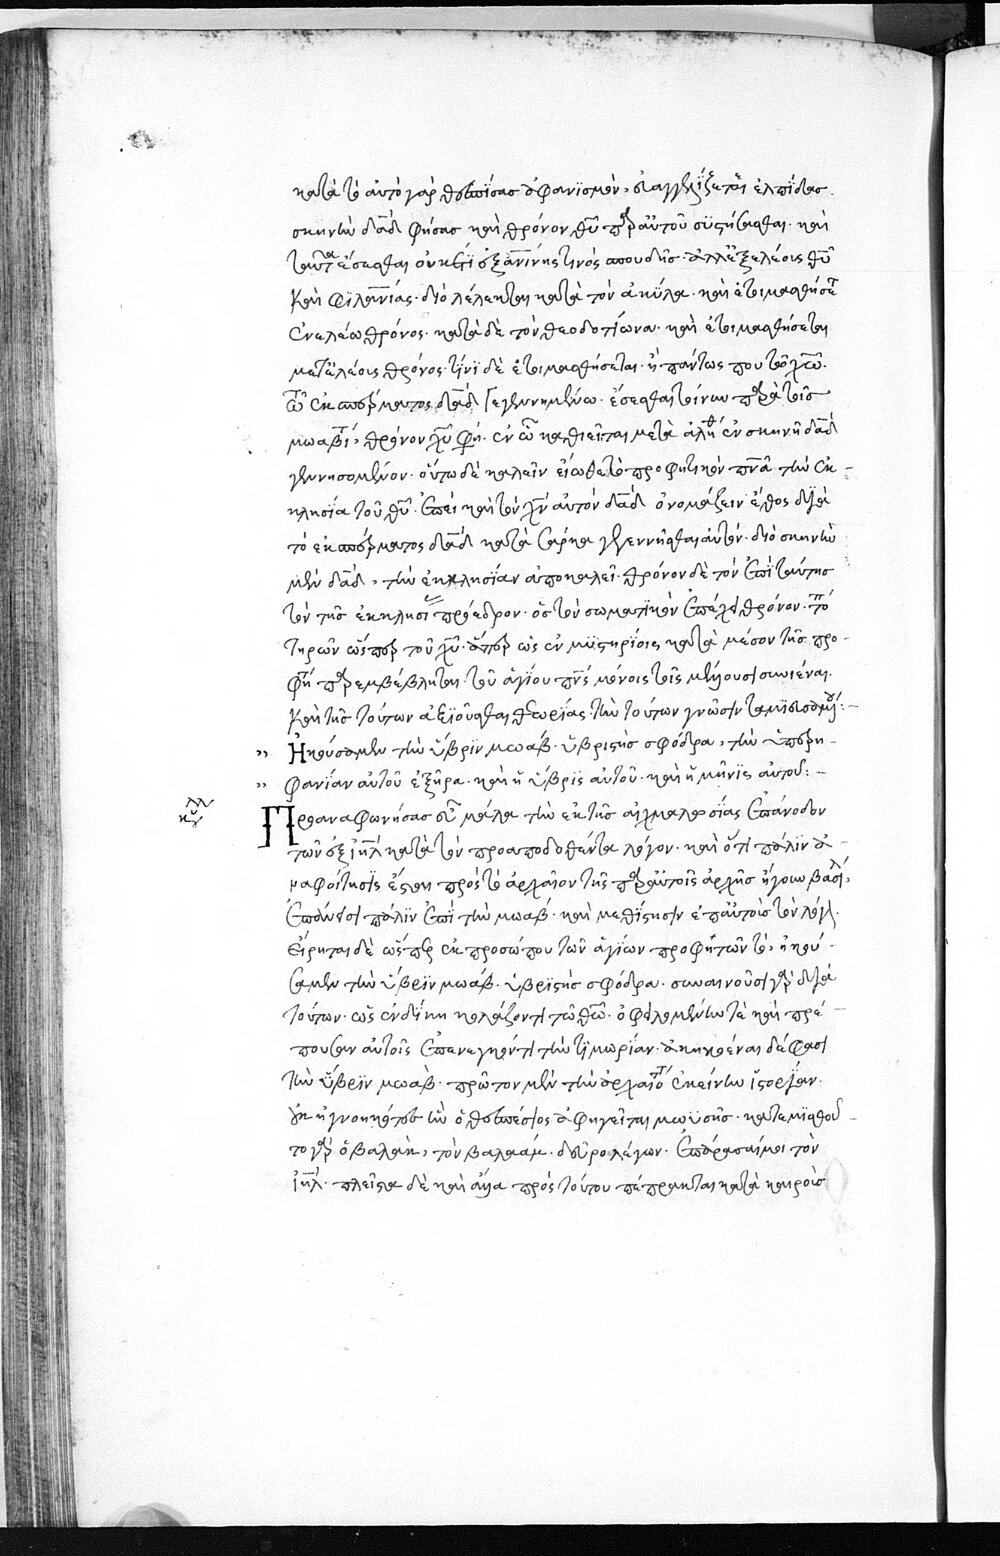 κατὰ τὸ αὐτὸ γὰρ θεσπίσας ἀφανϊσμὸν, εὐαγγελίζεται ἐλπίδας
σκηνὴν δᾱδ φήσας καὶ θρόνον θῡ παρ' αὐτοῦ συστήσασθαι· καὶ
ταῦτα ἔσεσθαι οὐκέτι ἐξ ἀνίνης τινὸς σπουδῆς· ἀλλ' ἐξ ἐλέους θῡ
καὶ φιλανίας· διὸ λέλεκται κατὰ τὸν ἀκύλα· καὶ ἑτοιμασθήσεται
ἐν ἐλέω θρόνος· κατὰ δὲ τὸν θεοδοτίωνα· καὶ ἑτοιμασθήσεται
μετ' ἐλέους θρόνος· τίνι δὲ ἑτοιμασθήσεται· ἢ πάντως που τῶ χω·
τῶ ἐκ σπέρματος δᾱδ γεγενημένω· ἔσεσθαι τοίνυν παρὰ τοῖς
μωαβίταις, θρόνον χῡ φησί· ἐν ὧ καθιεῖται μετὰ ἀληθείας ἐν σκηνῆ δᾱδ
γενησομένον· οὕτω δὲ καλεῖν εἴωθε τὸ προφητικὸν πνᾱ τὴν ἐκ-
κλησία τοῦ θῡ· ἐπεὶ καὶ τὸν χν αὐτὸν δᾱδ ὀνομάζειν ἔθος διὰ
τὸ ἐκ σπέρματος δᾱδ κατὰ σάρκα γεγεννῆσθαι αὐτόν· διὸ σκηνὴν
μὲν δᾱδ, τὴν ἐκκλησίαν ἀποκαλεῖ· θρόνον δὲ τὸν ἐπὶ ταύτης
τὸν τῆς ἐκκλησίας πρόεδρον· ὃς τὸν σωματικὸν ἐπέχει θρόνον·
τηρῶν ὥσπερ τοῦ χῡ· ἅπερ ὡς ἐν μυστηρίοις κατὰ μέσον τῆς προ-
φητείας παρεμβέβληται· τοῦ ἁγίου πνς μόνοις τοῖς μέλλουσι συνιέναι
καὶ τῆς τούτων ἀξιοῦσθαι θεωρίας· τὴν τούτων γνῶσιν ταμιευσαμένου:-
” Ἠκούσαμεν τὴν ὕβριν μωάβ· ὑβριστὴς σφόδρα, τὴν ὑπερη-
” φανίαν αὐτοῦ ἐξῆρα· καὶ ἡ ὕβρις αὐτοῦ· καὶ ἡ μῆνις αὐτοῦ:-
Προαναφωνήσας εὖ μάλα τὴν ἐκ τῆς αἰχμαλωσίας ἐπάνοδον
τῶν ἐξ ιηλ κατὰ τὸν προαποδοθέντα λόγον· καὶ ὅτι πάλιν ἀ-
ναφοίτησις ἔσται πρὸς τὸ ἀρχαῖον τῆς παρ' αὐτοῖς ἀρχῆς ἤγουν βασιλείας,
ἐπάνεισι πάλιν ἐπὶ τὴν μωάβ· καὶ μεθίστησιν ἐπ' αὐτοὺς τὸν λόγον·
εἴρηται δὲ ὥσπερ ἐκ προσώπου τῶν ἁγίων προφητῶν τὸ, ἠκού-
σαμεν τὴν ὕβριν μωάβ· ὑβριστὴς σφόδρα· συναινοῦσι γὰρ διὰ
τούτων· ὡς ἐνδίκη κολάζοντι τῶ θω· ὀφειλομένην τὲ καὶ πρέ-
πουσαν αὐτοῖς ἐπενεγκόντι τὴν τιμωρίαν· ἀκηκοέναι δέ φασι
τὴν ὕβριν μωάβ· πρῶτον μὲν τὴν ἀρχαιοτάτην ἐκείνην ἱστορίαν·
οὐκ ἠγνοηκότες ἣν ὁ θεσπέσιος ἀφηγεῖται μωϋσῆς· κατεμισθοῦ-
το γὰρ ὁ βαλὰκ, τὸν βαλαάμ· δεῦρο λέγων· ἐπάρασαί μοι τὸν
ιηλ· πλεῖστα δὲ καὶ ἄλλα πρὸς τούτου πέπρακται κατὰ καιροὺς